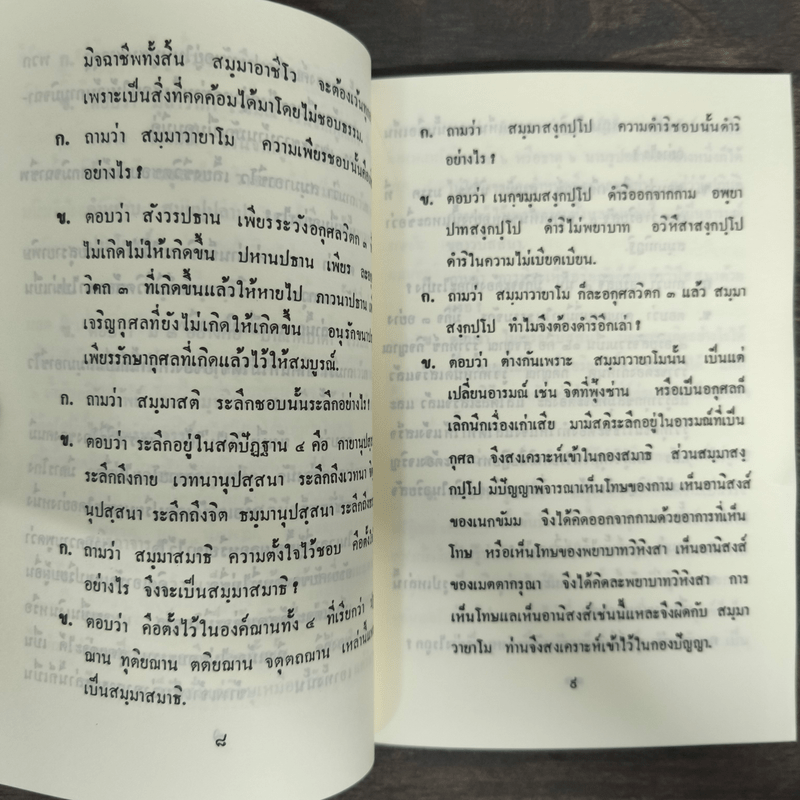 มิจฉาชีพทั้งสิ้น สมฺมาอาชีโว จะต้องเว้น
เพราะเป็นสิ่งที่คดค้อมได้มาโดยไม่ชอบธรรม.
ก. ถามว่า สมฺมาวายาโม ความเพียรชอบนั้น
อย่างไร ?
ข. ตอบว่า สังวรปธาน เพียรระวังอกุศลวิตก ๓
ไม่เกิดไม่ให้เกิดขึ้น ปหานปธาน เพียร ละ
วิตก ๓ ที่เกิดขึ้นแล้วให้หายไป ภาวนาปธาน
เจริญกุศลที่ยังไม่เกิดให้เกิดขึ้น อนุรักขนา
เพียรรักษากุศลที่เกิดแล้วไว้ให้สมบูรณ์.
ก. ถามว่า สมฺมาสติ ระลึกชอบนั้นระลึกอย่างไร ?
ข. ตอบว่า ระลึกอยู่ในสติปัฏฐาน ๔ คือ กายานุปสฺ
ระลึกถึงกาย เวทนานุปสฺสนา ระลึกถึงเวทนา
นุปสฺสนา ระลึกถึงจิต ธมฺมานุปสฺสนา ระลึกถึง
ก. ถามว่า สมฺมาสมาธิ ความตั้งใจไว้ชอบ คือตั้ง
อย่างไร จึงจะเป็นสมฺมาสมาธิ ?
ข. ตอบว่า คือตั้งไว้ในองค์ฌานทั้ง ๔ ที่เรียกว่า
ฌาน ทุติยฌาน ตติยฌาน จตุตถฌาน เหล่านี้
เป็นสมฺมาสมาธิ.
๘
ก. ถามว่า สมฺมาสงฺกปฺโป ความดำริชอบนั้นดำริ
อย่างไร ?
ข. ตอบว่า เนกฺขมฺมสงฺกปฺโป ดำริออกจากกาม อพฺยา
ปาทสงฺกปฺโป ดำริไม่พยาบาท อวิหึสาสงฺกปฺโป
ดำริในความไม่เบียดเบียน.
ก. ถามว่า สมฺมาวายาโม ก็ละอกุศลวิตก ๓ แล้ว สมฺมา
สงฺกปฺโป ทำไมจึงต้องดำริอีกเล่า ?
ข. ตอบว่า ต่างกันเพราะ สมฺมาวายาโมนั้น เป็นแต่
เปลี่ยนอารมณ์ เช่น จิตที่ฟุ้งซ่าน หรือเป็นอกุศลก็
เลิกนึกเรื่องเก่าเสีย มามีสติระลึกอยู่ในอารมณ์ที่เป็น
กุศล จึงสงเคราะห์เข้าในกองสมาธิ ส่วนสมฺมาสงฺ
กปฺโป มีปัญญาพิจารณาเห็นโทษของกาม เห็นอานิสงส์
ของเนกขัมม จึงได้คิดออกจากกามด้วยอาการที่เห็น
โทษ หรือเห็นโทษของพยาบาทวิหิงสา เห็นอานิสงส์
ของเมตตากรุณา จึงได้คิดละพยาบาทวิหิงสา การ
เห็นโทษแลเห็นอานิสงส์เช่นนี้แหละจึงผิดกับ สมฺมา
วายาโม ท่านจึงสงเคราะห์เข้าไว้ในกองปัญญา.
๙